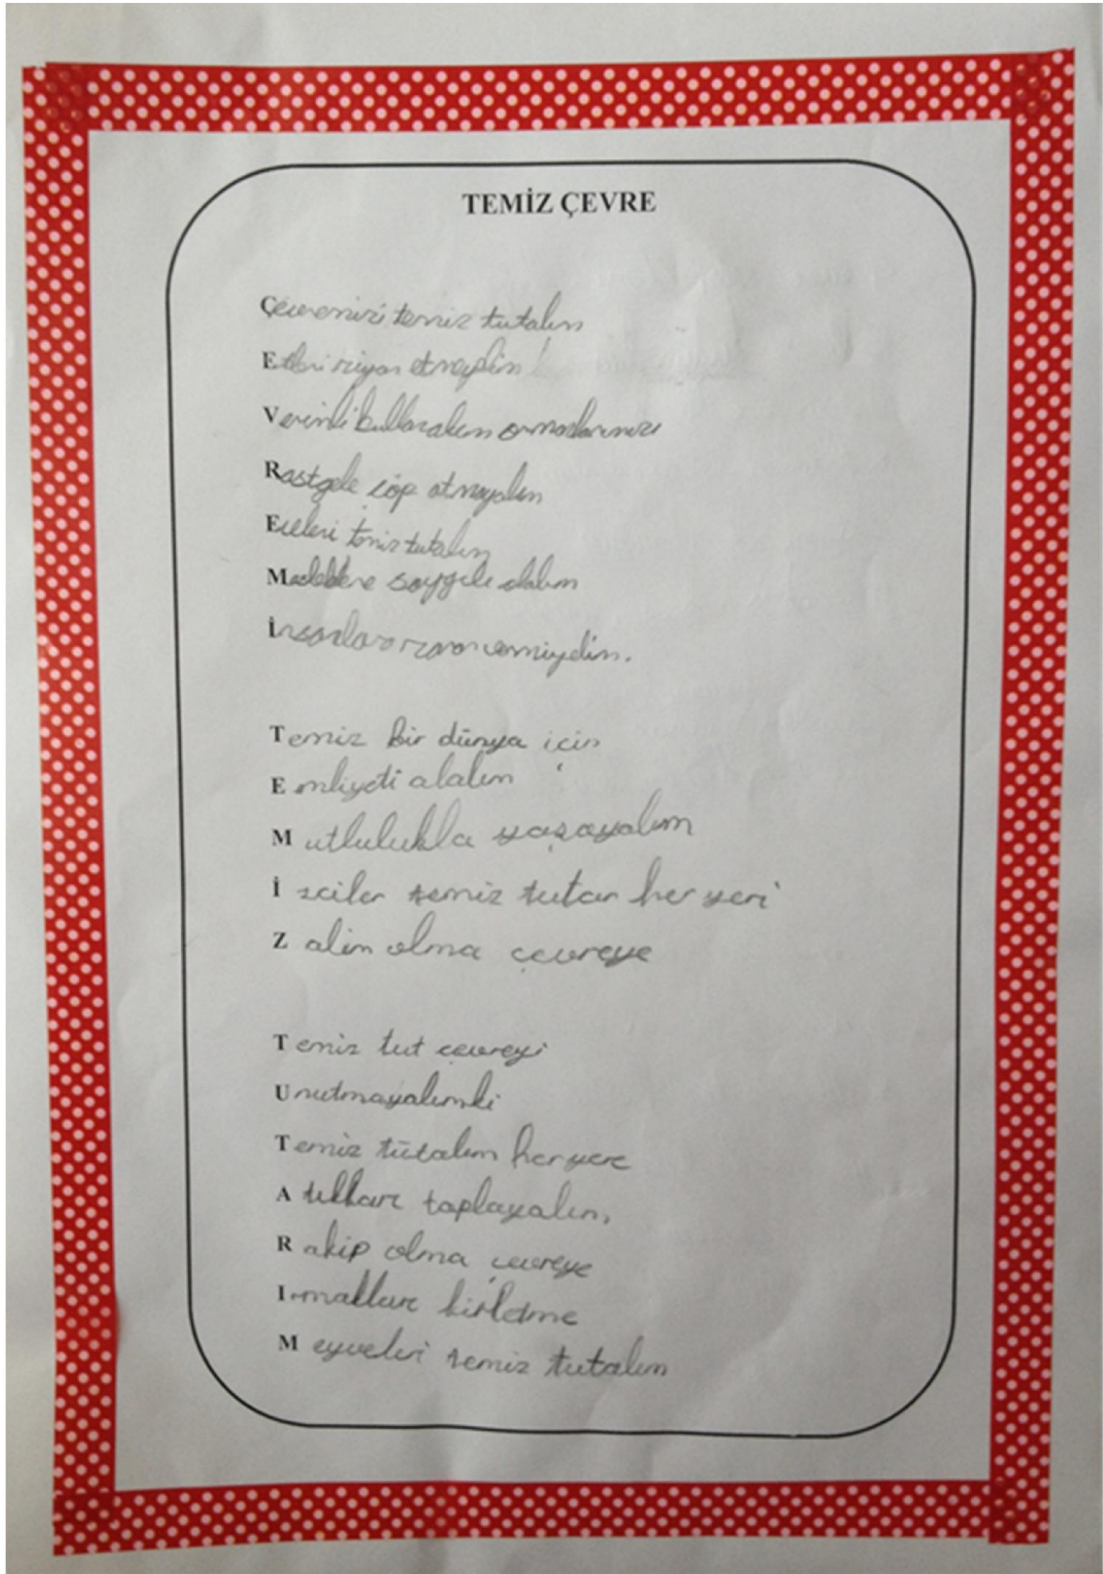 TEMİZ ÇEVRE
Çevremizi temiz tutalım
Etleri ziyan etmeylim!
Verimli kullanalım ormanlarımızı
Rastgele çöp atmayalım
Evleri temiz tutalım
saygılı olalım
İnsanlara zarar vermiyelim.
Temiz bir dünya için
Emliyeti alalım
Mutlulukla yaşayalım
İzciler temiz tutar her yeri
Zalim olma çevreye
Temiz tut çevreyi
Unutmayalımki
Temiz tütalım heryere
Atıkları toplayalım,
Rakip olma çevreye
Irmakları kirletme
Meyveleri temiz tutalım